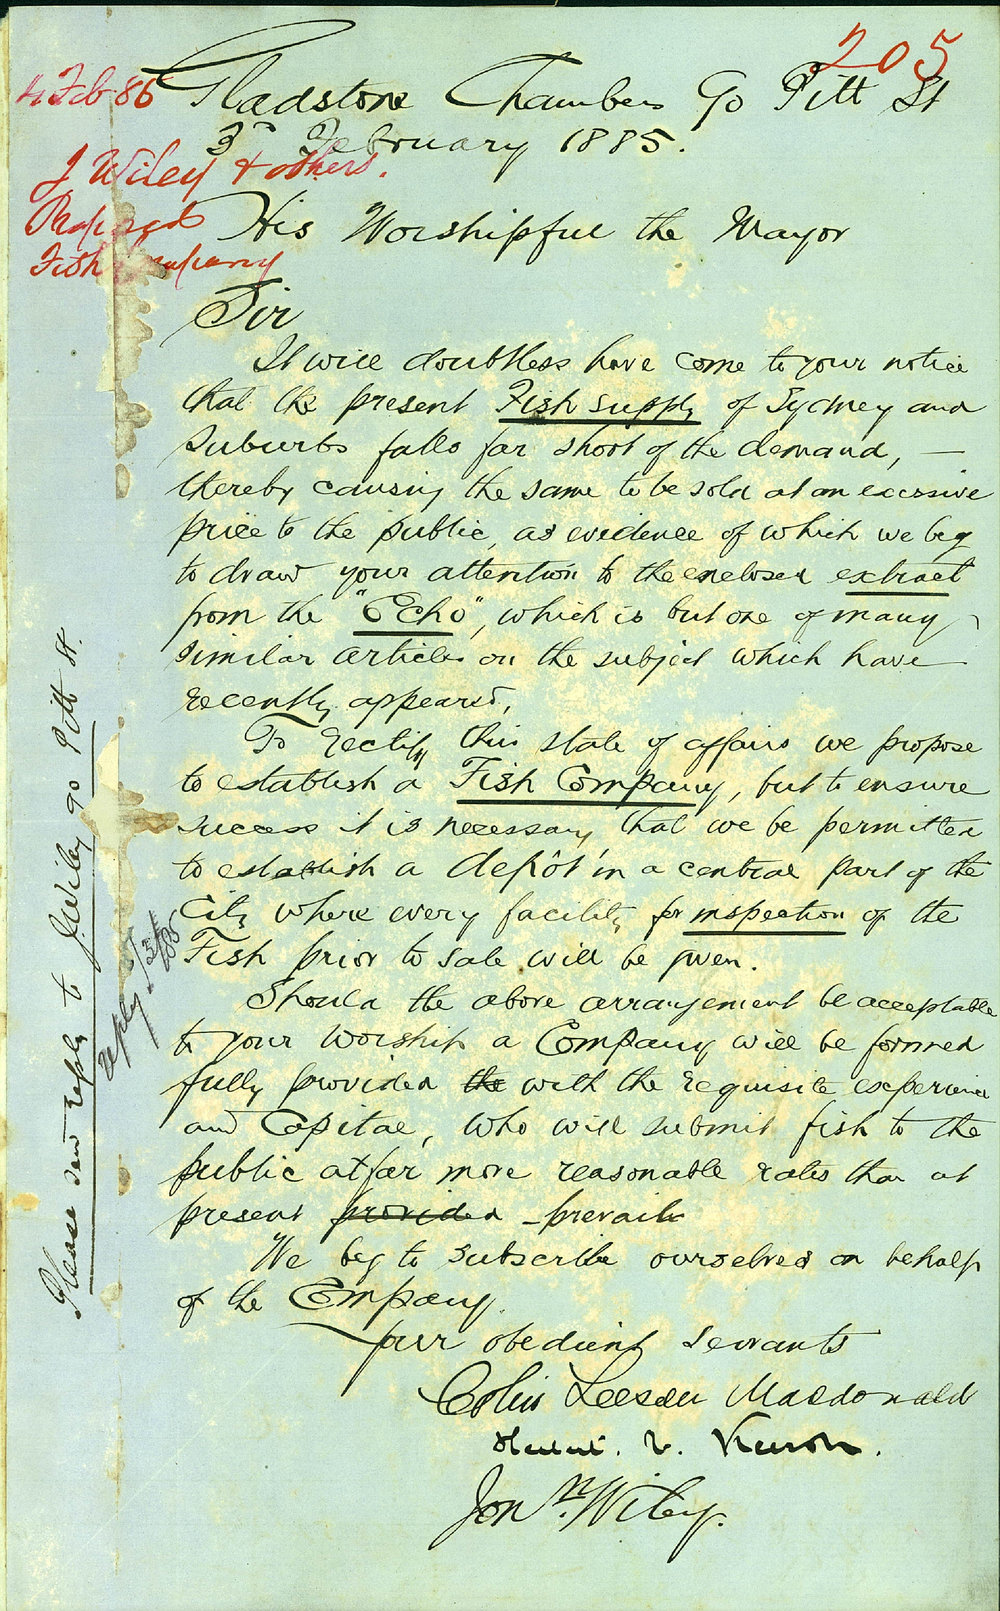 205
4 Feb 85
Gladstone Chambers 90 Pitt St
3rd February 1885.
J Wiley & others.
Proposed
Fish Company
His Worshipful the Mayor
Sir
It will doubtless have come to your notice
that the present Fish supply of Sydney and
suburbs falls far short of the demand, —
thereby causing the same to be sold at an excessive
price to the public, as evidence of which we beg
to draw your attention to the enclosed extract
from the "Echo", which is but one of many
similar articles on the subject which have
recently appeared,
To rectify this state of affairs we propose
to establish a Fish Company, but to ensure
success it is necessary that we be permitted
to establish a depôt in a central part of the
City where every facility for inspection of the
Fish prior to sale will be given.
Should the above arrangement be acceptable
to your Worship a Company will be formed
fully provided the with the requisite experience
and Capital, who will submit fish to the
public at far more reasonable rates than at
present provided - prevails
We beg to subscribe ourselves on behalf
of the Company.
Your obedient servants
Colin Leeson Macdonald
Jonn. Wiley.
Please send reply to J. Wiley 90 Pitt St.
reply